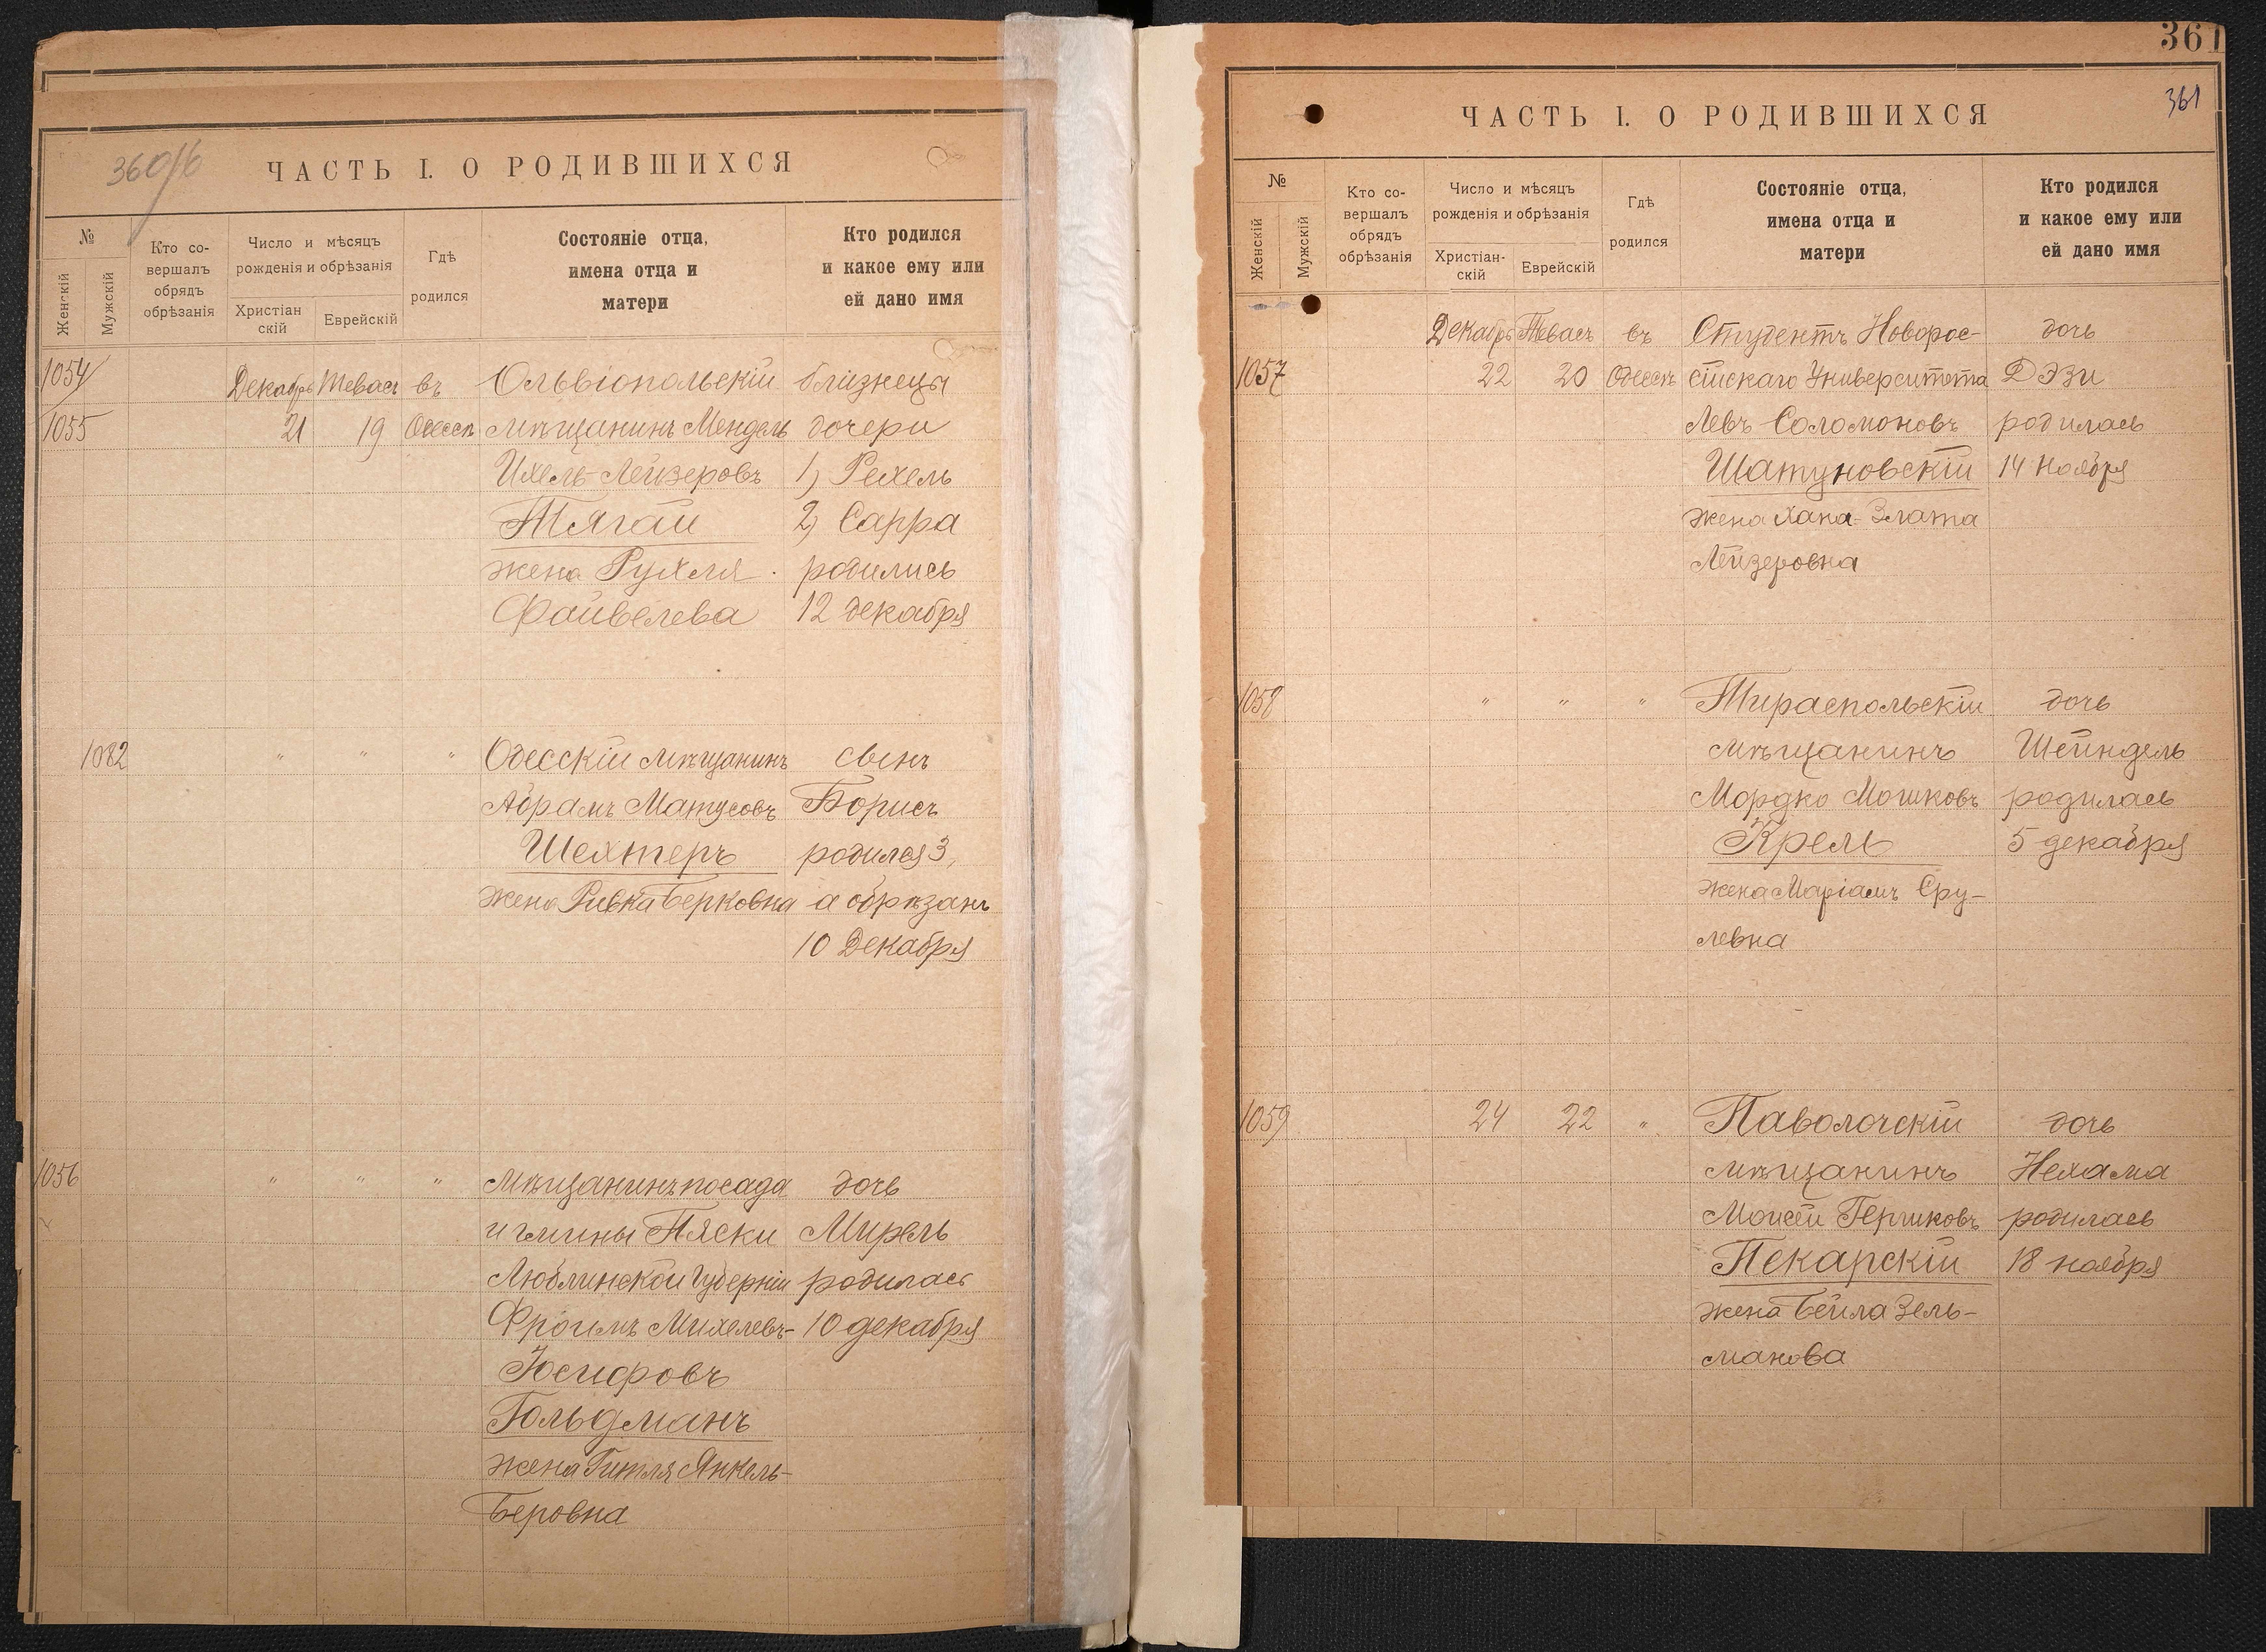 360/б
ЧАСТЬ I. О РОДИВШИХСЯ
№
Женскій
Мужскій
Кто со-
вершалъ
обрядъ
обрѣзанія
Число и мѣсяцъ
рожденія и обрѣзанія
Христіан
скій
Еврейскій
Гдѣ
родился
Состояніе отца,
имена отца и
матери
Кто родился
и какое ему или
ей дано имя
1054 Декабрь Тевасъ въ Ольвіопольскій близнецы
1055 21 19 Одессѣ мѣщанинъ Мендель дочери
Ихель-Лейзеровъ 1) Рехель
Тягай 2) Сарра
жена Рухля родились
Файвелева 12 декабря
1082 " " " Одесскій мѣщанинъ сынъ
Абрамъ Матусовъ Борисъ
Шехтеръ родился 3,
жена Ривка Берковна а обрѣзанъ
10 Декабря
1056 " " " мѣщанинъ посада дочь
и гмины Пяски Мирель
Люблинской Губерніи родилась
Фроимъ Михелевъ- 10 декабря
Іосифовъ
Гольдманъ
жена Гитля Янкель-
Беровна
361
361
ЧАСТЬ I. О РОДИВШИХСЯ
№
Женскій
Мужскій
Кто со-
вершалъ
обрядъ
обрѣзанія
Число и мѣсяцъ
рожденія и обрѣзанія
Христіан-
скій
Еврейскій
Гдѣ
родился
Состояніе отца,
имена отца и
матери
Кто родился
и какое ему или
ей дано имя
Декабрь Тевасъ въ Студентъ Новорос- дочь
1057 22 20 Одессѣ сійскаго Университета Дэзи
Левъ Соломоновъ родилась
Шатуновскій 14 ноября
жена Хана-Злата
Лейзеровна
1058 " " " Тираспольскій дочь
мѣщанинъ Шейндель
Мордко Мошковъ родилась
Крель 5 декабря
жена Маріамъ Сру-
левна
1059 24 22 " Паволочскій дочь
мѣщанинъ Нехама
Моисей Гершковъ родилась
Пекарскій 18 ноября
жена Бейла Зель-
манова